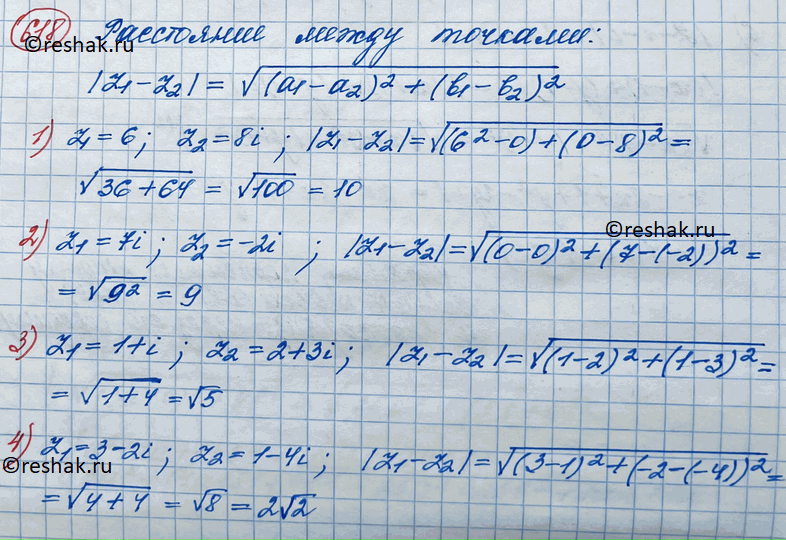 618 Расстояние между точками:
©reshak.ru
|z₁-z₂| = √(a₁-a₂)² + (b₁-b₂)²
1) z₁ = 6; z₂ = 8i ; |z₁-z₂| = √(6²-0)+(0-8)² =
√36+64 = √100 = 10
©reshak.ru
2) z₁ = 7i; z₂ = -2i ; |z₁-z₂| = √(0-0)²+(7-(-2))² =
= √9² = 9
3) z₁ = 1+i ; z₂ = 2+3i; |z₁-z₂| = √(1-2)²+(1-3)² =
= √1+4 = √5
4) z₁=3-2i; z₂ = 1-4i; |z₁-z₂| = √(3-1)²+(-2-(-4))² =
©reshak.ru ©reshak.ru
= √4+4 = √8 = 2√2